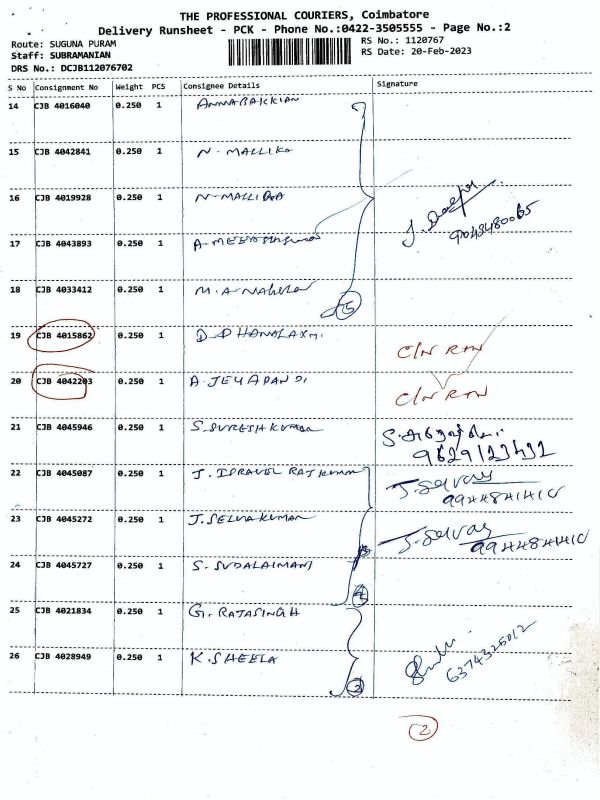 THE PROFESSIONAL COURIERS, Coimbatore
Delivery Runsheet - PCK - Phone No.:0422-3505555 - Page No.:2
Route: SUGUNA PURAM RS No.: 1120767
Staff: SUBRAMANIAN RS Date: 20-Feb-2023
DRS No.: DCJB112076702
S No Consignment No Weight PCS Consignee Details Signature
14 CJB 4016040 0.250 1 ANNABAKKIAN
15 CJB 4042841 0.250 1 N. MALLIKA
16 CJB 4019928 0.250 1 N. MALLIGA
17 CJB 4043893 0.250 1 A.
18 CJB 4033412 0.250 1 M.A.
5
19 CJB 4015862 0.250 1 D. DHANALAXMI C/N RTN
20 CJB 4042203 0.250 1 A. JEYAPANDI C/N RTN
21 CJB 4045946 0.250 1 S. SURESH KUMAR
9629123432
22 CJB 4045087 0.250 1 J. ISRAVEL RAJKUMAR J. Selvaj
9944841410
23 CJB 4045272 0.250 1 J. SELVAKUMAR J. Selvaj
9944841410
24 CJB 4045727 0.250 1 S. SUDALAIMANI
25 CJB 4021834 0.250 1 G. RAJASINGH
26 CJB 4028949 0.250 1 K. SHEELA
6374325012
2
2